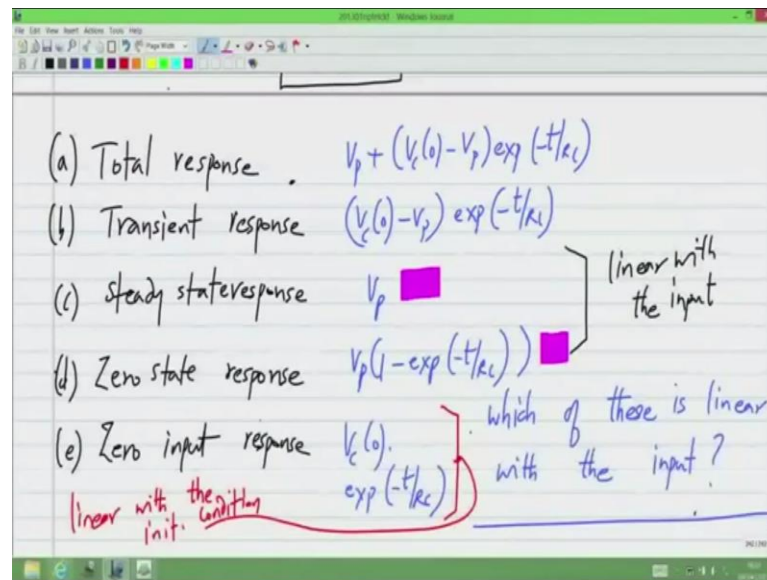 Windows Journal
File Edit View Insert Actions Tools Help
Page Width
B I
(a) Total response . Vp + (Vc(0) - Vp) exp (-t/RC)
(b) Transient response (Vc(0) - Vp) exp (-t/RC)
(c) Steady stateresponse Vp
linear with
the input
(d) Zero state response Vp(1 - exp (-t/RC))
(e) Zero input response Vc(0).
exp (-t/RC)
which of these is linear
with the input ?
linear with the
init. condition